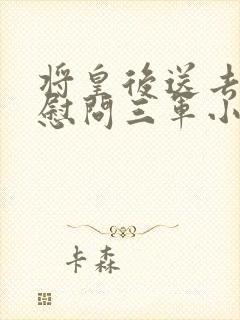 将皇後送去
慰問三軍小
卡森